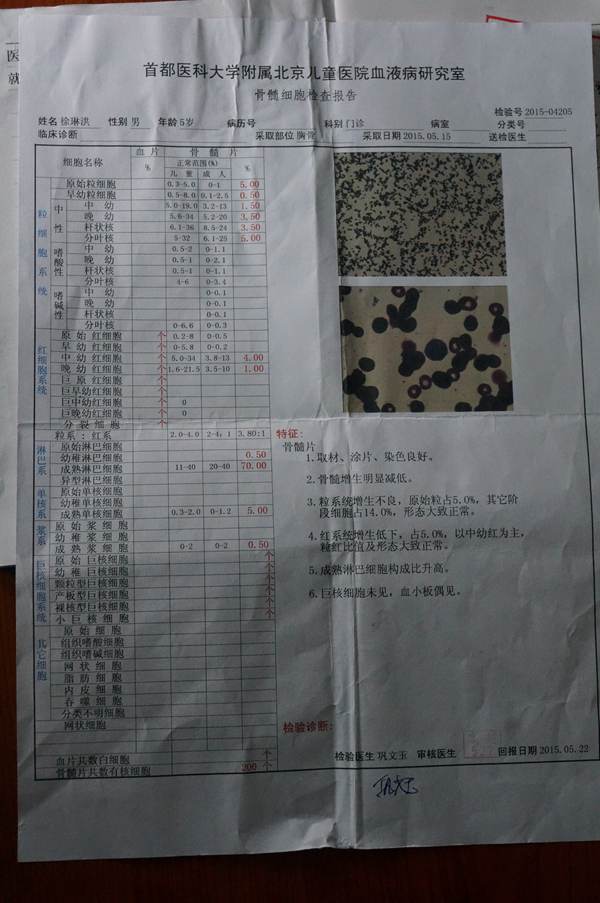 医
就
首都医科大学附属北京儿童医院血液病研究室
骨髓细胞检查报告
检验号 2015-04205
姓名 徐琳洪 性别 男 年龄 5岁 病历号 科别 门诊 病室 分类号
临床诊断 采取部位 胸骨 采取日期 2015.05.15 送检医生
细胞名称 血片 骨髓片
% 正常范围(%) %
儿童 成人
粒细胞系统
原始粒细胞 0.3-5.0 0-1 5.00
早幼粒细胞 0.5-8.0 0.1-2.5 0.50
中性 中幼 5.0-19.0 3.2-13 1.50
晚幼 5.6-34 5.2-20 3.50
杆状核 6.1-36 8.5-24 3.50
分叶核 5-32 6.1-25 5.00
嗜酸性 中幼 0.5-2 0-1.1
晚幼 0.5-1 0-2.1
杆状核 0.5-1 0-1.1
分叶核 4-6 0-3.4
嗜碱性 中幼 0-0.1
晚幼 0-0.1
杆状核 0-0.1
分叶核 0-6.6 0-0.3
红细胞系统
原始红细胞 个 0.2-8 0-0.5
早幼红细胞 个 0-5.8 0-0.2
中幼红细胞 个 5.0-34 3.8-13 4.00
晚幼红细胞 个 1.6-21.5 3.5-10 1.00
巨原红细胞 个
巨早幼红细胞 个
巨中幼红细胞 个 0
巨晚幼红细胞 个 0
分裂细胞 个
粒系：红系 2.0-4.0 2-4:1 3.80:1
淋巴系
原始淋巴细胞
幼稚淋巴细胞 0.50
成熟淋巴细胞 11-40 20-40 70.00
异型淋巴细胞
单核系
原始单核细胞
幼稚单核细胞
成熟单核细胞 0.3-2.0 0-1.2 5.00
浆系
原始浆细胞
幼稚浆细胞
成熟浆细胞 0-2 0-2 0.50
巨核细胞系统
原始巨核细胞 个
幼稚巨核细胞 个
颗粒型巨核细胞 个
产板型巨核细胞 个
裸核型巨核细胞 个
小巨核细胞 个
其它细胞
原始细胞
组织嗜酸细胞
组织嗜碱细胞
网状细胞
脂肪细胞
内皮细胞
吞噬细胞
分类不明细胞
网状细胞
血片共数白细胞 个
骨髓片共数有核细胞 200 个
特征：
骨髓片
1.取材、涂片、染色良好。
2.骨髓增生明显减低。
3.粒系统增生不良，原始粒占5.0%，其它阶
段细胞占14.0%，形态大致正常。
4.红系统增生低下，占5.0%，以中幼红为主，
粒红比值及形态大致正常。
5.成熟淋巴细胞构成比升高。
6.巨核细胞未见，血小板偶见。
检验诊断：
检验医生 巩文玉 审核医生 回报日期 2015.05.22
巩文玉